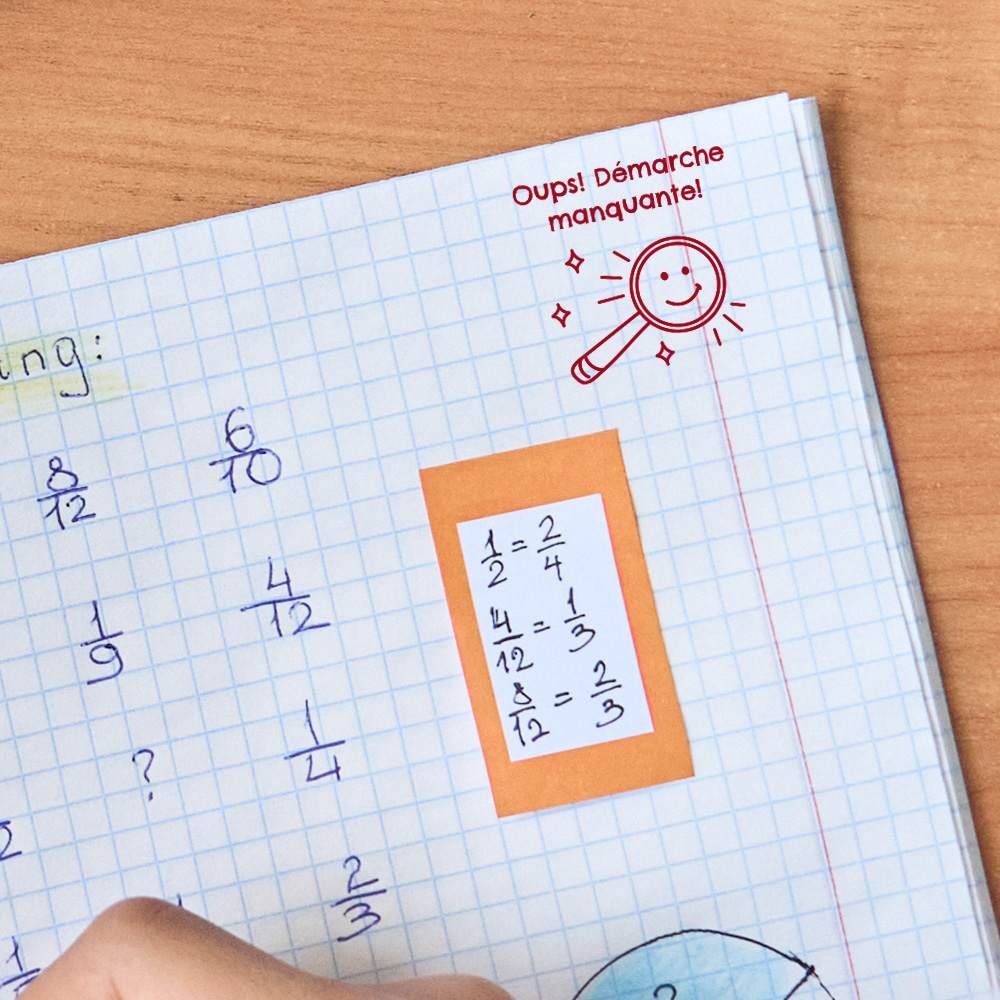 Oups! Démarche
manquante!
ing:
8/12 6/10
1/9 4/12
? 1/4
2/3
1/2 = 2/4
4/12 = 1/3
8/12 = 2/3